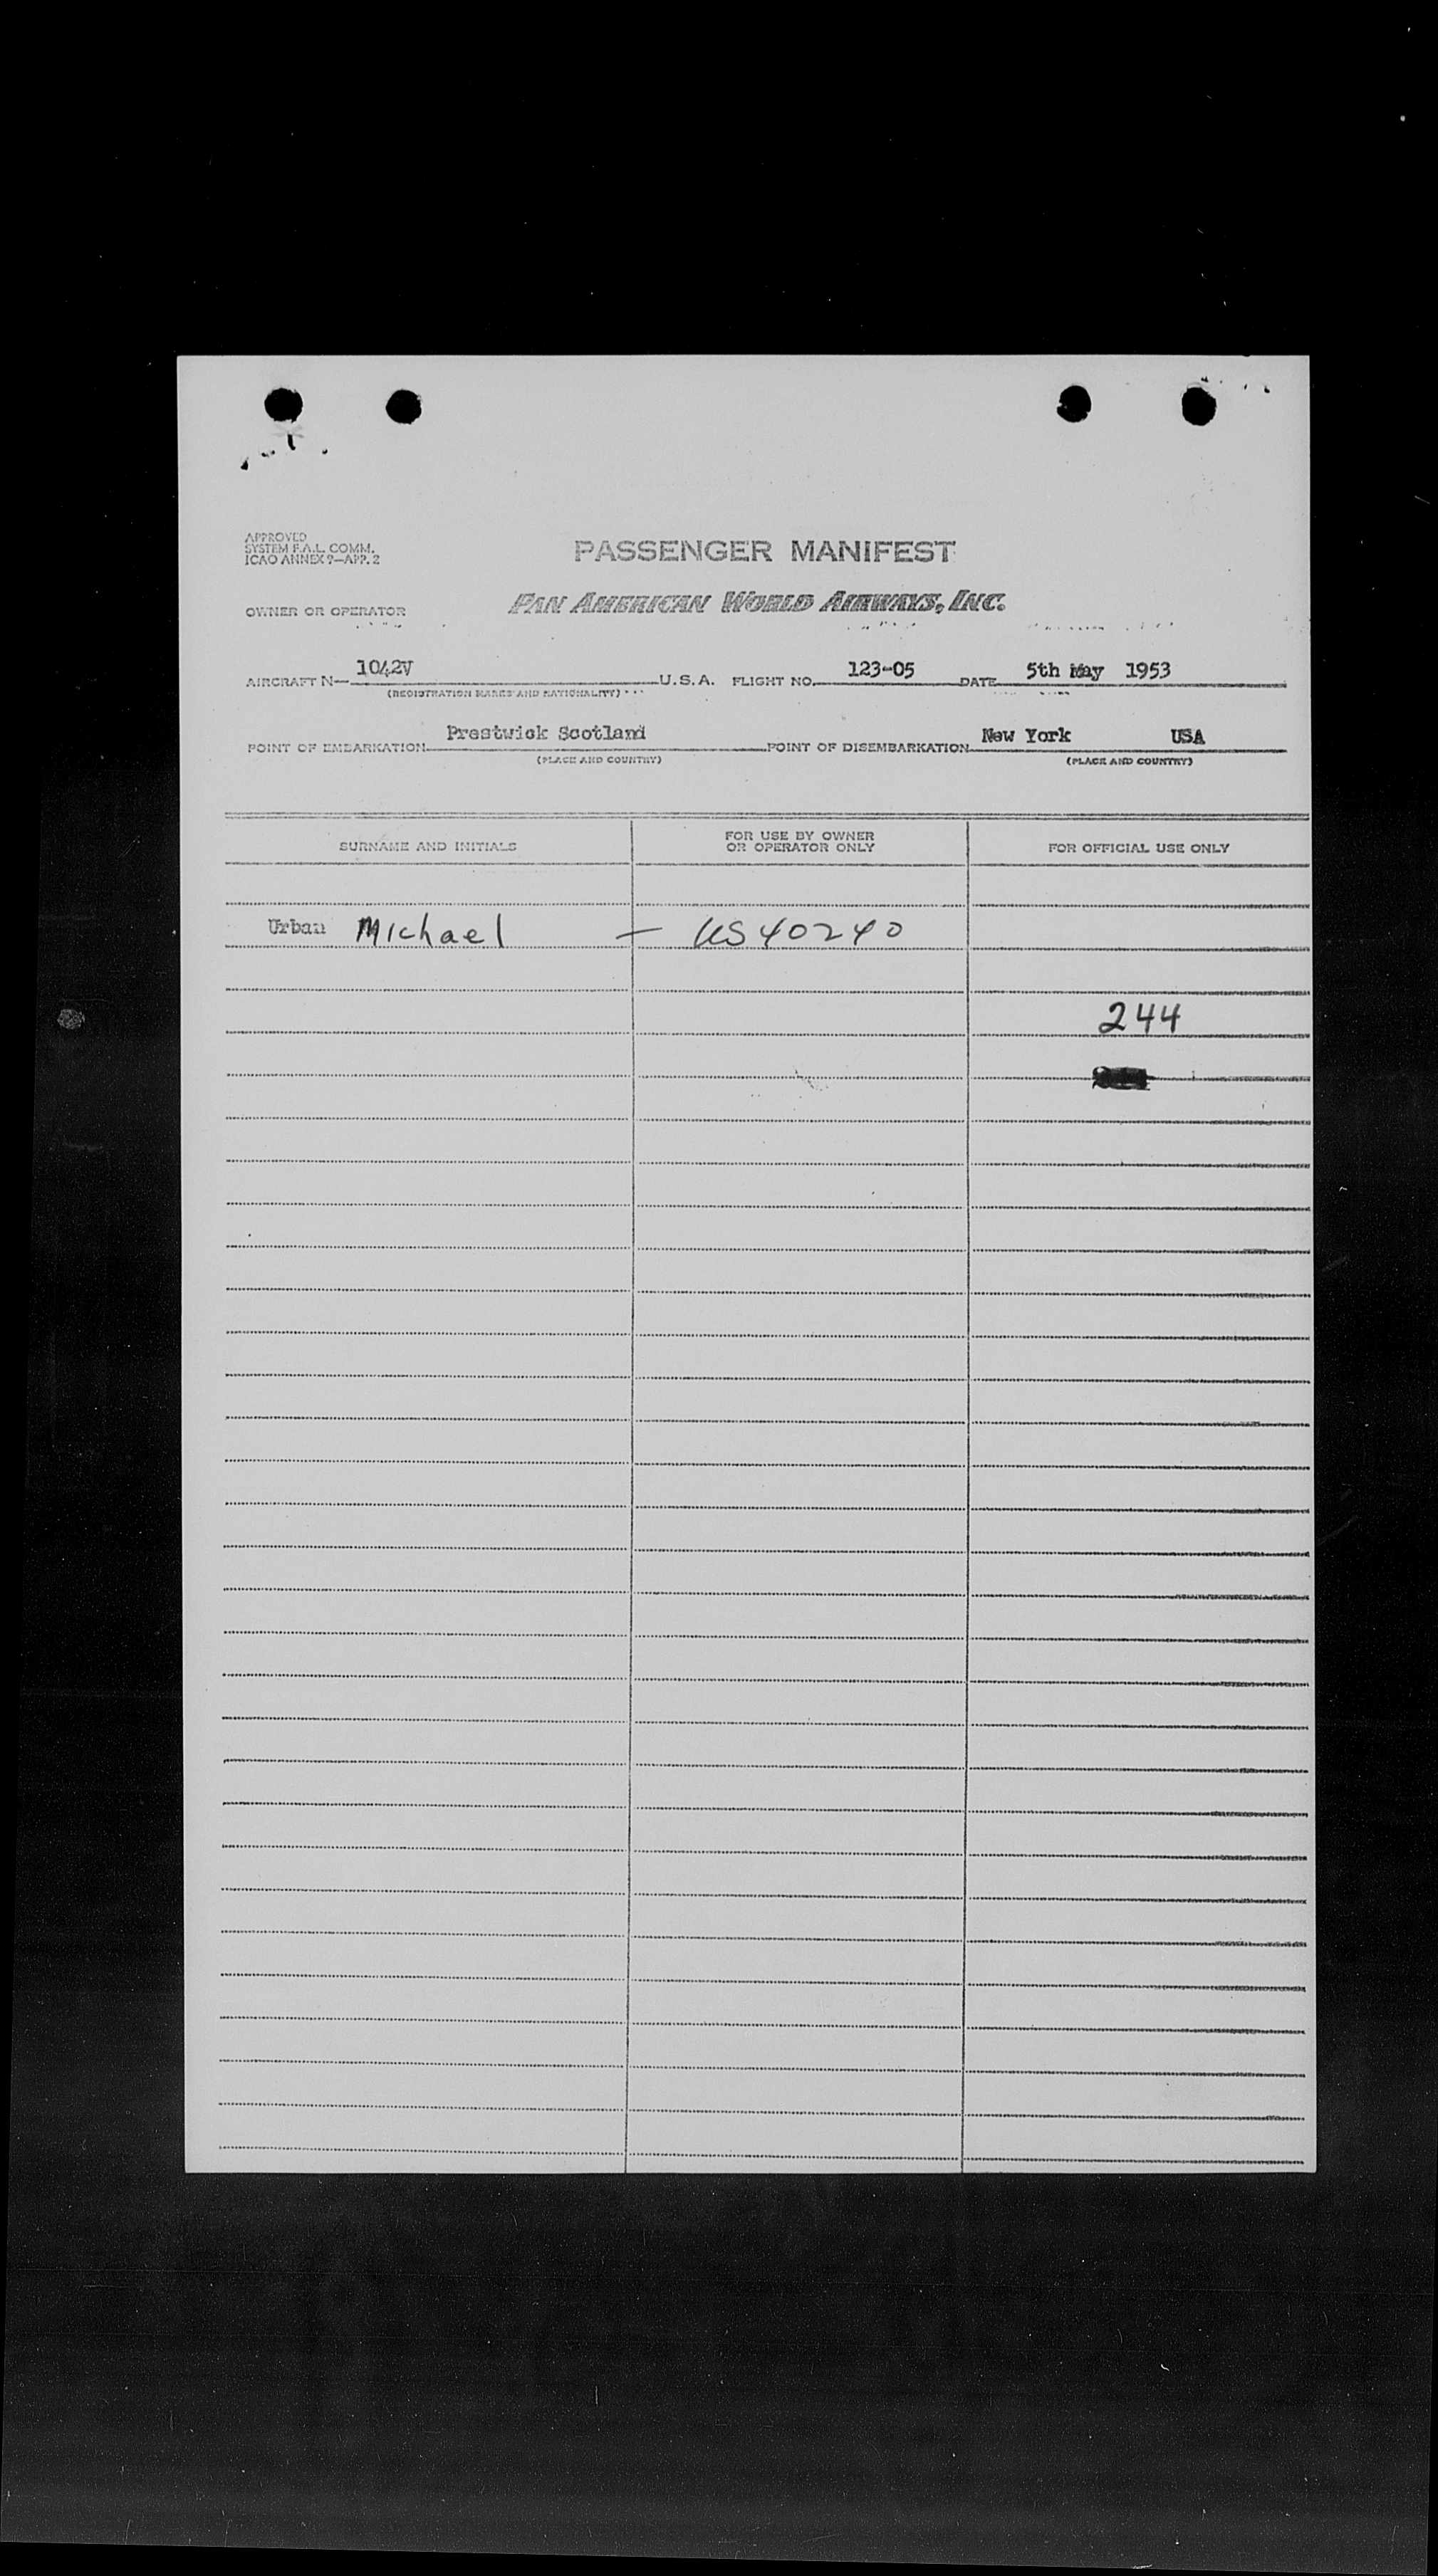 APPROVED
SYSTEM F.A.L. COMM.
ICAO ANNEX 9—APP. 2
PASSENGER MANIFEST
OWNER OR OPERATOR PAN AMERICAN WORLD AIRWAYS, INC.
AIRCRAFT N— 1042V U.S.A. FLIGHT NO. 123-05 DATE 5th May 1953
(REGISTRATION MARKS AND NATIONALITY)
POINT OF EMBARKATION Prestwick Scotland POINT OF DISEMBARKATION New York USA
(PLACE AND COUNTRY) (PLACE AND COUNTRY)
SURNAME AND INITIALS FOR USE BY OWNER OR OPERATOR ONLY FOR OFFICIAL USE ONLY
Urban Michael — US40240
244